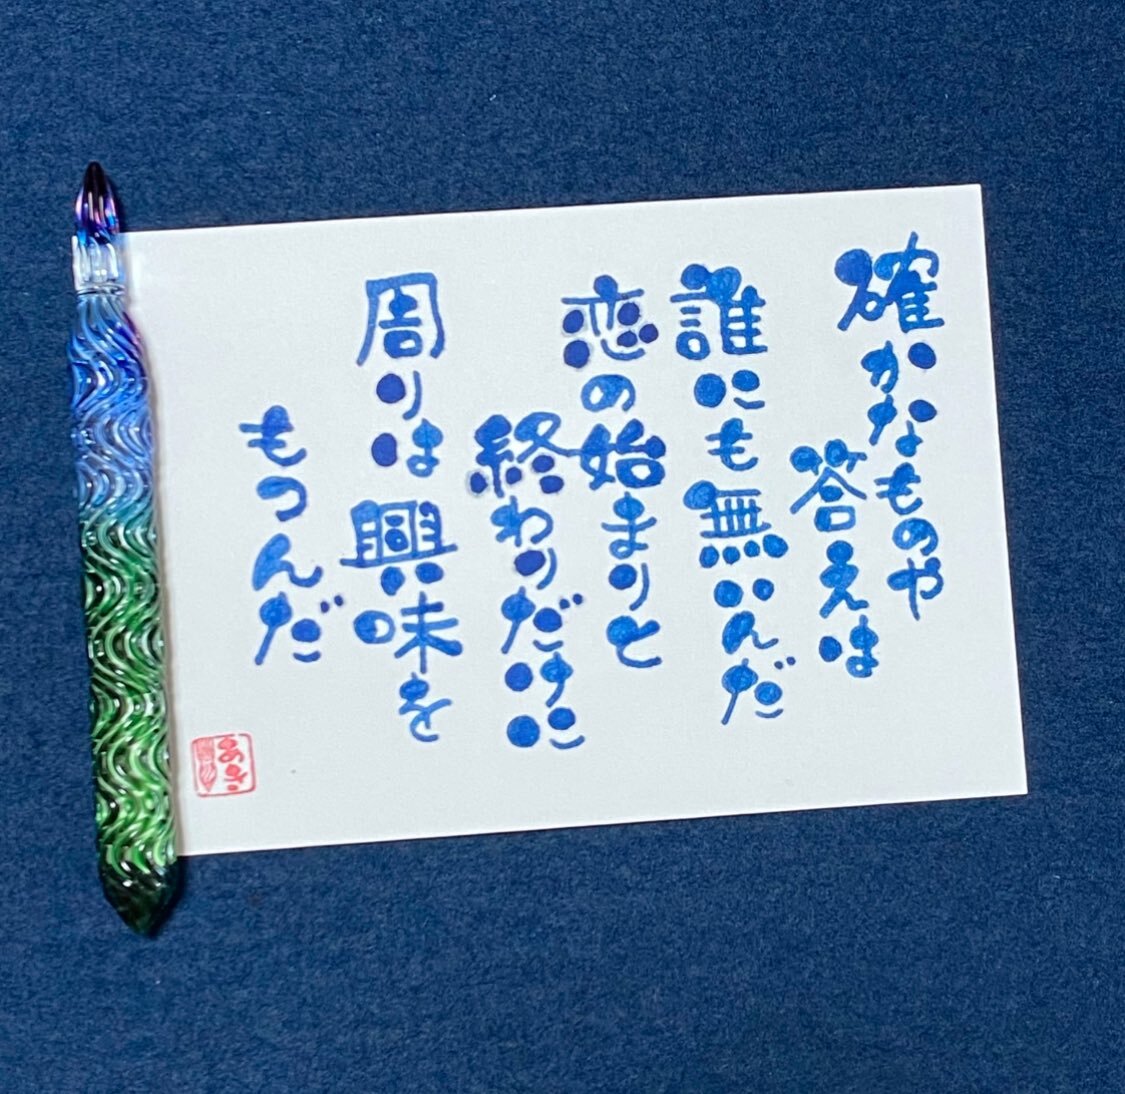 確かなものや
答えは
誰にも無いんだ
恋の始まりと
終わりだけに
周りは興味を
もつんだ